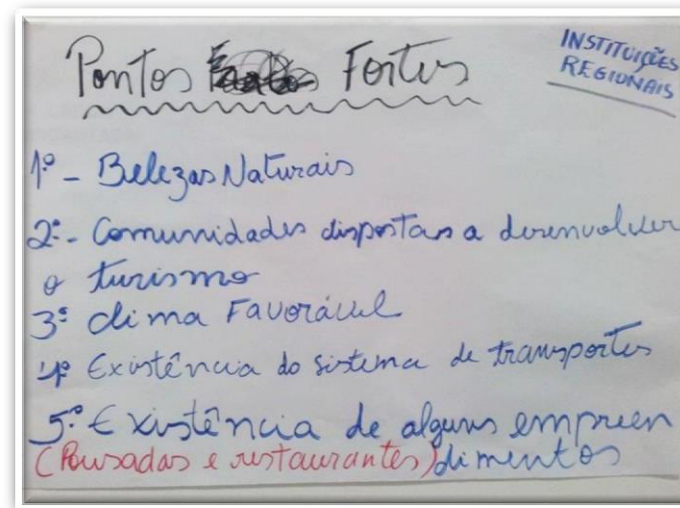 Pontos Fortes
INSTITUIÇÕES
REGIONAIS
1º - Belezas Naturais
2º - Comunidades dispostas a desenvolver
o turismo
3º clima Favorável
4º Existência do sistema de transportes
5º Existência de alguns empreen
(Pousadas e restaurantes) dimentos